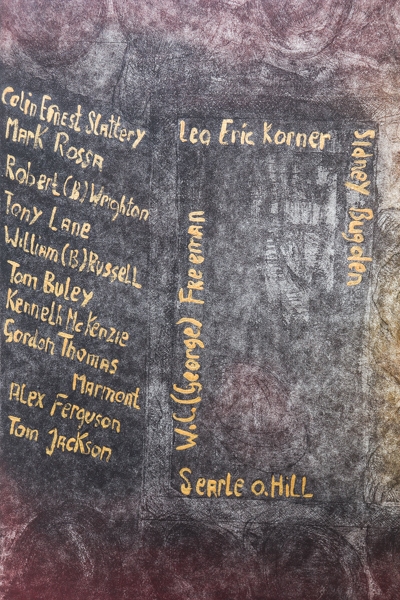 Colin Ernest Slattery
Mark Rossa
Robert (B.) Weighton
Tony Lane
William (B) Russell
Tom Buley
Kenneth McKenzie
Gordon Thomas
Marmont
Alex Ferguson
Tom Jackson
Leo Eric Korner
Sidney Bugden
W.C. (George) Freeman
Searle O. Hill